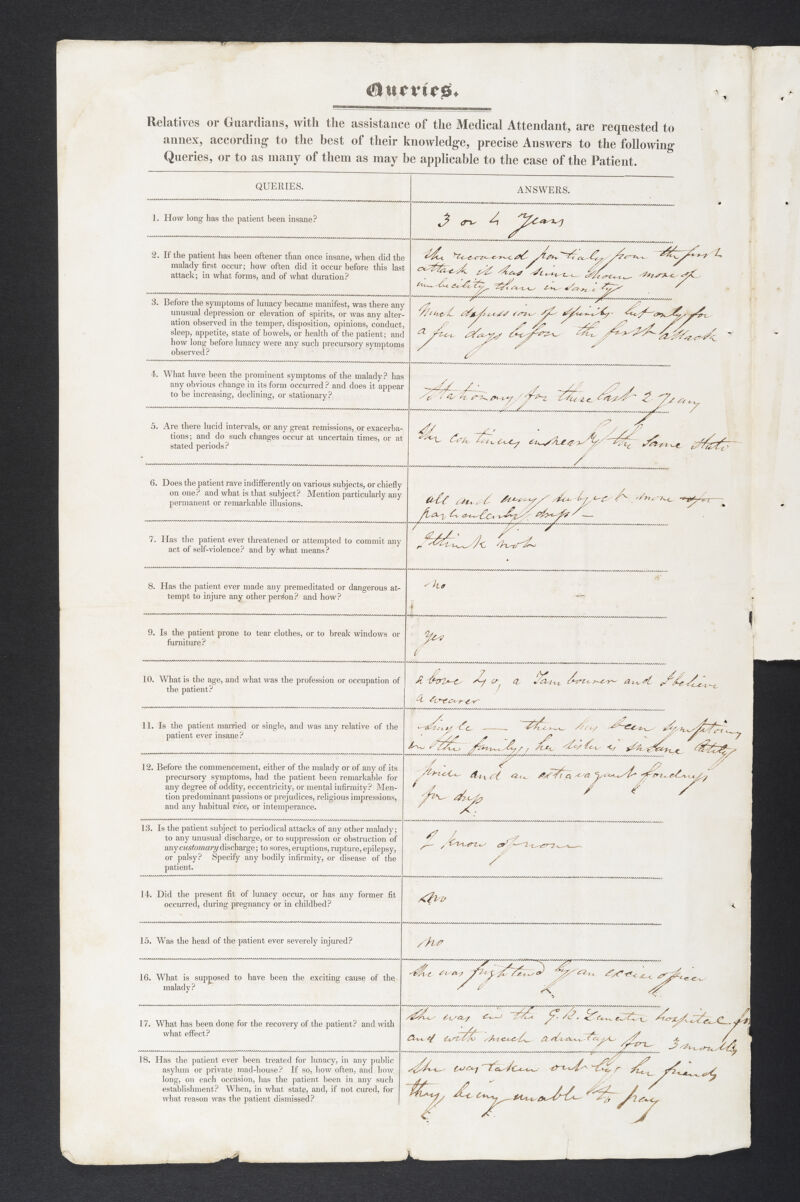 Queries.
Relatives or Guardians, with the assistance of the Medical Attendant, are requested to
annex, according to the best of their knowledge, precise Answers to the following
Queries, or to as many of them as may be applicable to the case of the Patient.
QUERIES.
ANSWERS.
1. How long has the patient been insane?
3 or 4 Years
2. If the patient has been oftener than once insane, when did the
malady first occur; how often did it occur before this last
attack; in what forms, and of what duration?
She recovered partialy from the first
attack it has since shown more of
imbecility than insanity
3. Before the symptoms of lunacy became manifest, was there any
unusual depression or elevation of spirits, or was any alter-
ation observed in the temper, disposition, opinions, conduct,
sleep, appetite, state of bowels, or health of the patient; and
how long before lunacy were any such precursory symptoms
observed?
Much depression of spirits but only for
a few days before the first attack
4. What have been the prominent symptoms of the malady? has
any obvious change in its form occurred? and does it appear
to be increasing, declining, or stationary?
Stationary for these last 2 Years
5. Are there lucid intervals, or any great remissions, or exacerba-
tions; and do such changes occur at uncertain times, or at
stated periods?
She continues in nearly the same State
6. Does the patient rave indifferently on various subjects, or chiefly
on one? and what is that subject? Mention particularly any
permanent or remarkable illusions.
all and every subject more
particularly dress
7. Has the patient ever threatened or attempted to commit any
act of self-violence? and by what means?
I think not
8. Has the patient ever made any premeditated or dangerous at-
tempt to injure any other person? and how?
no
9. Is the patient prone to tear clothes, or to break windows or
furniture?
yes
10. What is the age, and what was the profession or occupation of
the patient?
above 40, a Tambourer and I believe
a weaver
11. Is the patient married or single, and was any relative of the
patient ever insane?
Single — there has been symptoms
in the family, her sister is insane
12. Before the commencement, either of the malady or of any of its
precursory symptoms, had the patient been remarkable for
any degree of oddity, eccentricity, or mental infirmity? Men-
tion predominant passions or prejudices, religious impressions,
and any habitual vice, or intemperance.
pride and an extravagant fondness
for dress
13. Is the patient subject to periodical attacks of any other malady;
to any unusual discharge, or to suppression or obstruction of
any customary discharge; to sores, eruptions, rupture, epilepsy,
or palsy? Specify any bodily infirmity, or disease of the
patient.
I know of none
14. Did the present fit of lunacy occur, or has any former fit
occurred, during pregnancy or in childbed?
no
15. Was the head of the patient ever severely injured?
no
16. What is supposed to have been the exciting cause of the
malady?
She was frightend by an excise officer
17. What has been done for the recovery of the patient? and with
what effect?
She was in the G.R. Lunatic hospital for
and with much advantage for 3 months
18. Has the patient ever been treated for lunacy, in any public
asylum or private mad-house? If so, how often, and how
long, on each occasion, has the patient been in any such
establishment? When, in what state, and, if not cured, for
what reason was the patient dismissed?
She was taken out by her friends
they being unable to pay